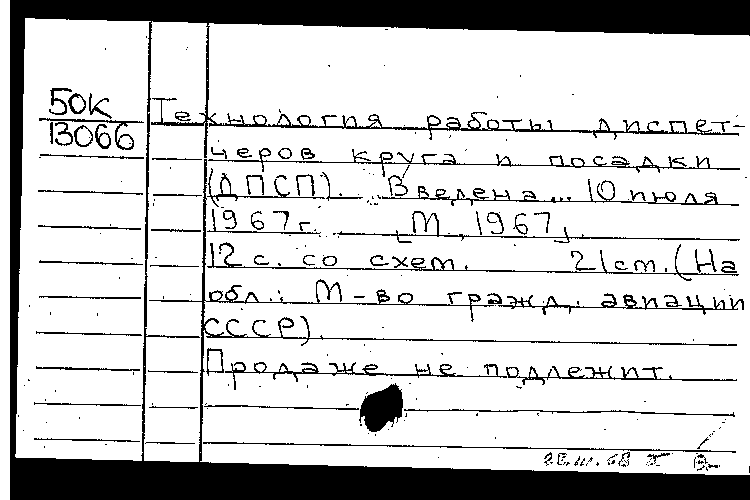 50К
13066
Технология работы диспет-
черов круга и посадки
(ДПСП). Введена... 10 июля
1967г. [М., 1967].
12 с. со схем. 21 см. (На
обл.: М-во гражд. авиации
СССР).
Продаже не подлежит.